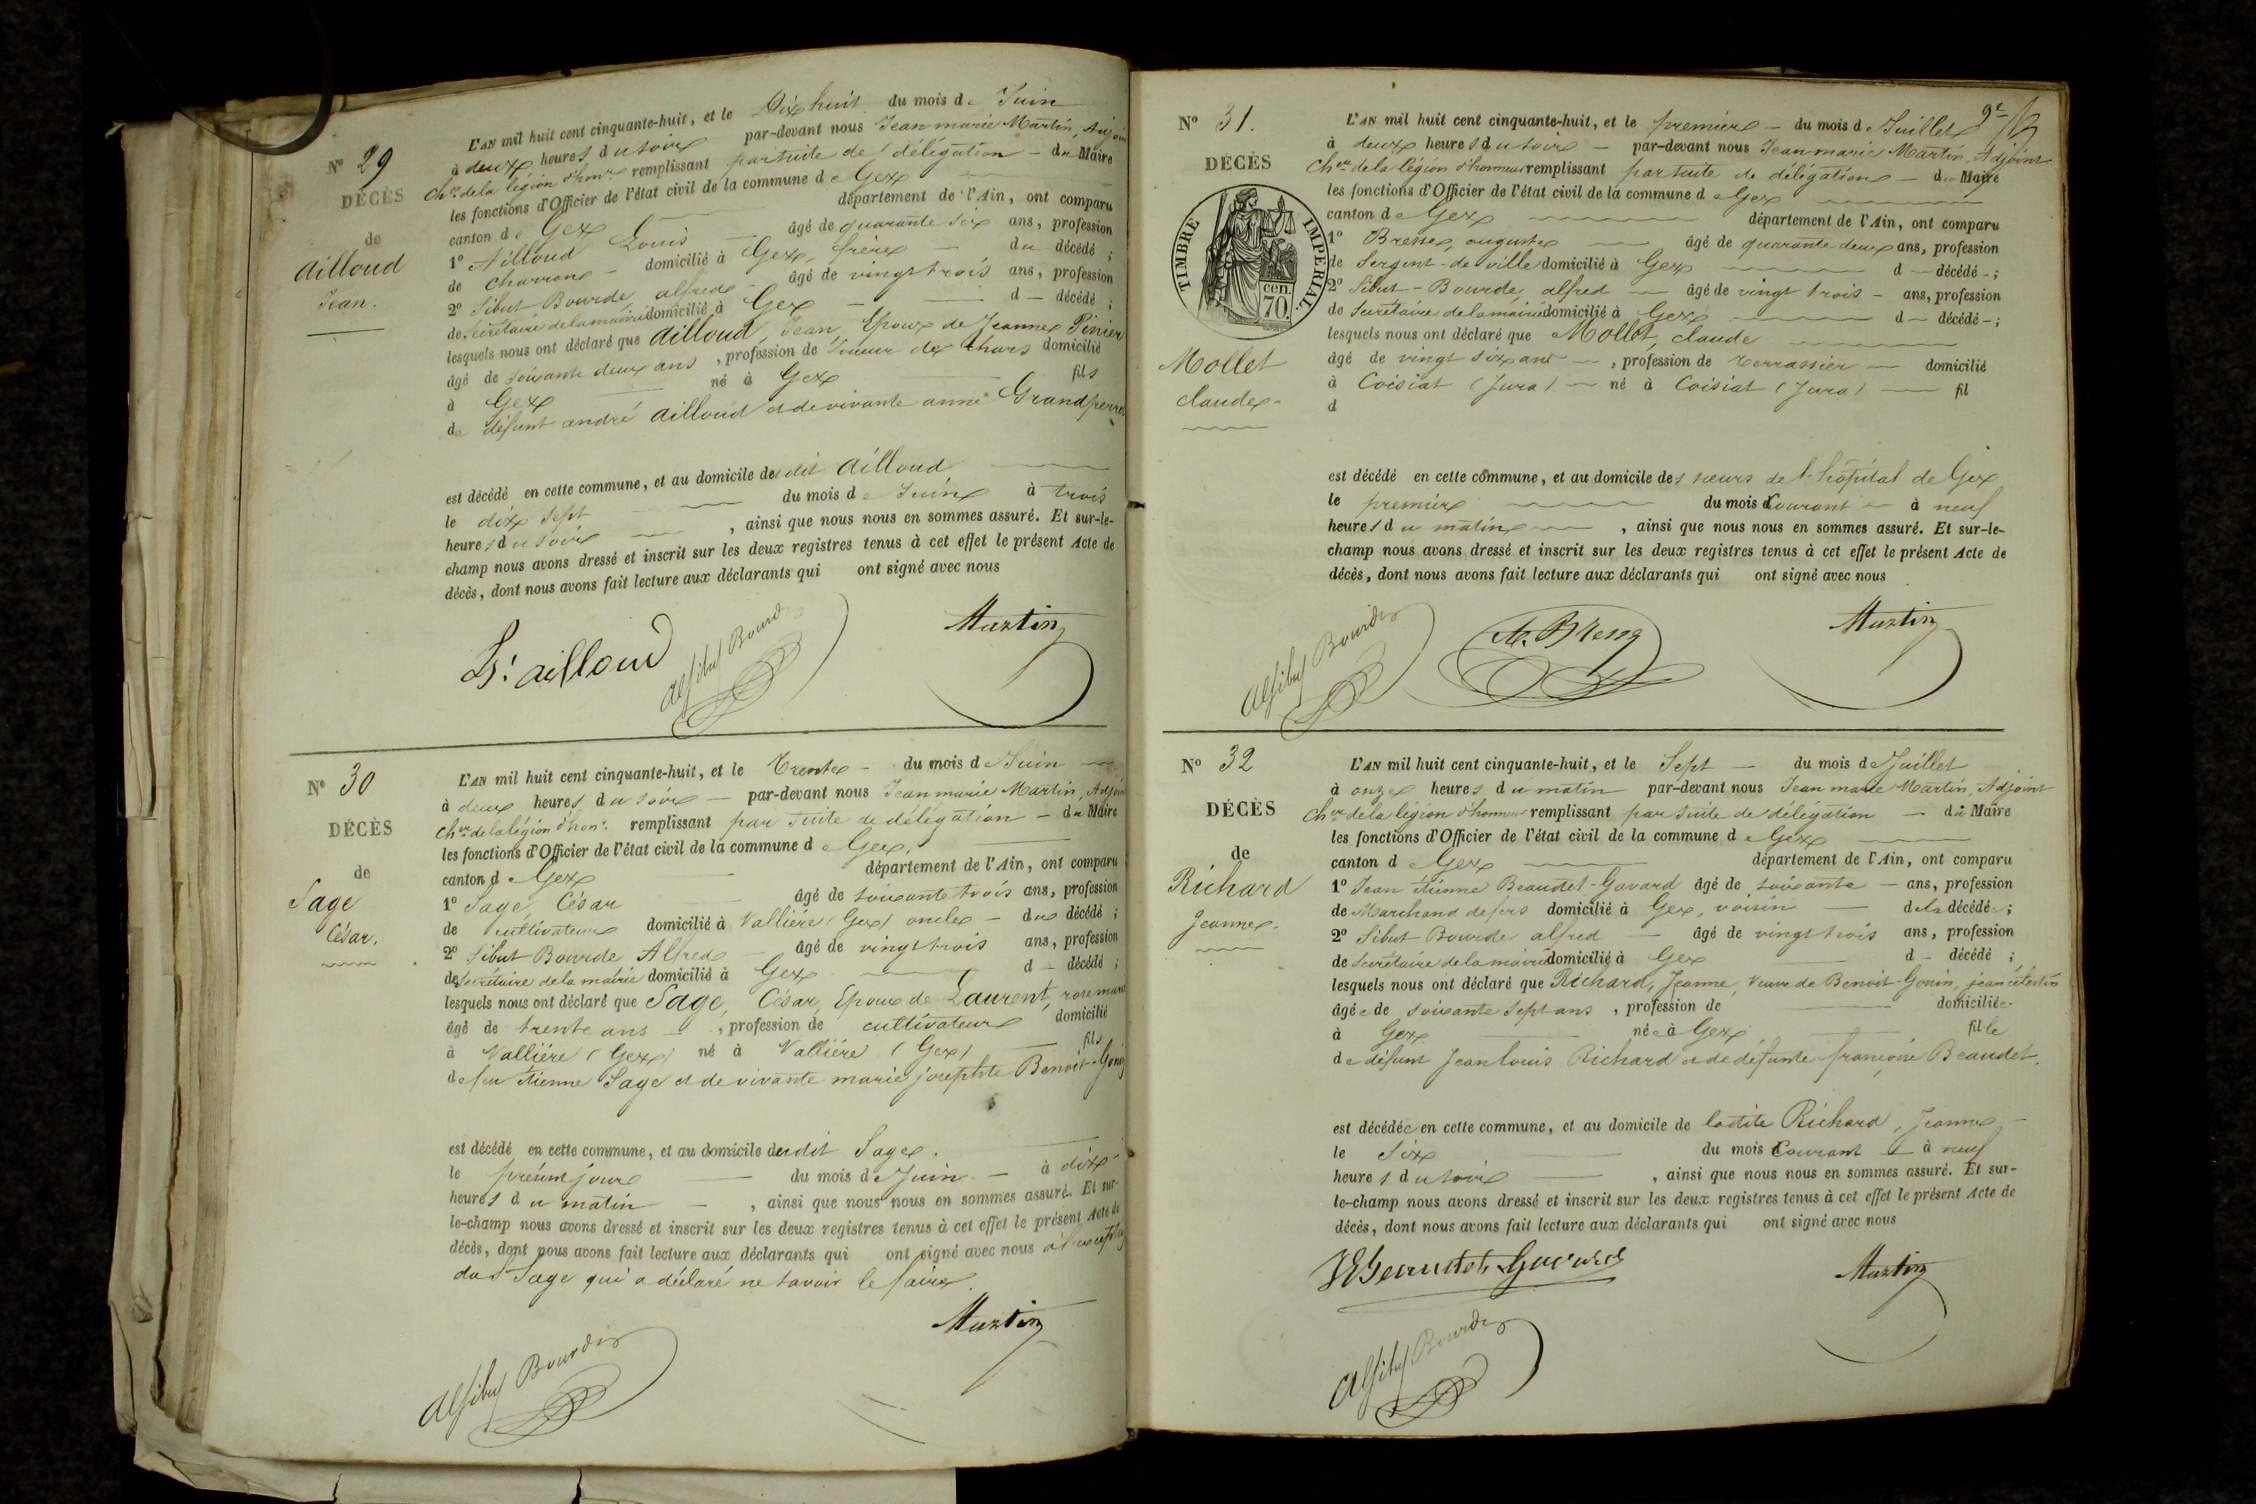 N° 29
DÉCÈS
de
Ailloud
Jean.
L'AN mil huit cent cinquante-huit, et le Dix huit du mois de Juin
à deux heures du soir par-devant nous Jean marie Martin, Adjoint
Cher de la légion d'honr remplissant par suite de délégation — du Maire
les fonctions d'Officier de l'état civil de la commune de Gex
canton de Gex département de l'Ain, ont comparu
1° Ailloud Louis — âgé de quarante six ans, profession
de charron — domicilié à Gex, frère — du décédé ;
2° Sibut Bourde, alfred — âgé de vingt trois ans, profession
de Secrétaire de la mairie domicilié à Gex — d — décédé ;
lesquels nous ont déclaré que Ailloud, Jean, Epoux de Jeanne Pinier
âgé de soixante deux ans, profession de domicilié
à Gex né à Gex fils
de défunt andré Ailloud et de vivante anne Grandperret
est décédé en cette commune, et au domicile dudit Ailloud
le dix sept du mois de Juin à trois
heures du soir, ainsi que nous nous en sommes assuré. Et sur-le-
champ nous avons dressé et inscrit sur les deux registres tenus à cet effet le présent Acte de
décès, dont nous avons fait lecture aux déclarants qui ont signé avec nous
Ls. ailloud
Al Sibut Bourde
Martin
N° 30
DÉCÈS
de
Sage
César.
L'AN mil huit cent cinquante-huit, et le Trente — du mois de Juin —
à deux heures du soir — par-devant nous Jean marie Martin, Adjoint
Cher de la légion d'honr. remplissant par suite de délégation — du Maire
les fonctions d'Officier de l'état civil de la commune de Gex.
canton de Gex département de l'Ain, ont comparu
1° Sage, César âgé de soixante trois ans, profession
de cultivateur domicilié à Vallière (Gex) oncle — du décédé ;
2° Sibut Bourde Alfred — âgé de vingt trois ans, profession
de Secrétaire de la mairie domicilié à Gex d — décédé ;
lesquels nous ont déclaré que Sage, César, Epoux de Laurent, rose marie
âgé de trente ans —, profession de cultivateur domicilié
à Vallière (Gex) né à Vallière (Gex) — fils
de feu Etienne Sage et de vivante marie josephte Benoit-Gonin
est décédé en cette commune, et au domicile dudit Sage.
le présent jour — du mois de Juin — à dix
heures du matin —, ainsi que nous nous en sommes assuré. Et sur-
le-champ nous avons dressé et inscrit sur les deux registres tenus à cet effet le présent Acte de
décès, dont nous avons fait lecture aux déclarants qui ont signé avec nous à l'exception
du s. Sage qui a déclaré ne savoir le faire.
Al Sibut Bourde
Martin
9e
N° 31.
DÉCÈS
TIMBRE IMPERIAL.
cen.
70.
Mollet
claude.
L'AN mil huit cent cinquante-huit, et le premier — du mois de Juillet
à deux heures du soir — par-devant nous Jean marie Martin, Adjoint
Cher de la légion d'honneur remplissant par suite de délégation — du Maire
les fonctions d'Officier de l'état civil de la commune de Gex
canton de Gex département de l'Ain, ont comparu
1° Bresse, auguste — âgé de quarante deux ans, profession
de Sergent-de-ville domicilié à Gex d — décédé - ;
2° Sibut - Bourde, alfred — âgé de vingt trois - ans, profession
de Secrétaire de la mairie domicilié à Gex d — décédé - ;
lesquels nous ont déclaré que Mollet, claude
âgé de vingt six ans —, profession de terrassier — domicilié
à Coisiat (Jura) — né à Coisiat (Jura) — fil
d
est décédé en cette commune, et au domicile des sœurs de l'hôpital de Gex
le premier du mois Courant — à neuf
heures du matin —, ainsi que nous nous en sommes assuré. Et sur-le-
champ nous avons dressé et inscrit sur les deux registres tenus à cet effet le présent Acte de
décès, dont nous avons fait lecture aux déclarants qui ont signé avec nous
Al Sibut Bourde
A. Bresse
Martin
N° 32
DÉCÈS
de
Richard
Jeanne.
L'AN mil huit cent cinquante-huit, et le Sept — du mois de Juillet
à onze heures du matin par-devant nous Jean marie Martin, Adjoint
Cher de la légion d'honneur remplissant par suite de délégation — du Maire
les fonctions d'Officier de l'état civil de la commune de Gex
canton de Gex département de l'Ain, ont comparu
1° Jean étienne Beaudet-Gavard âgé de soixante — ans, profession
de Marchand de fers domicilié à Gex, voisin — de la décédée ;
2° Sibut Bourde alfred — âgé de vingt trois ans, profession
de Secrétaire de la mairie domicilié à Gex d — décédé ;
lesquels nous ont déclaré que Richard, Jeanne, Veuve de Benoit-Gonin, jean célestin
âgée de soixante sept ans, profession de domiciliée
à Gex née à Gex fille
de défunt Jean louis Richard et de défunte françoise Beaudet.
est décédée en cette commune, et au domicile de ladite Richard, Jeanne
le Six du mois Courant — à neuf
heures du soir, ainsi que nous nous en sommes assuré. Et sur-
le-champ nous avons dressé et inscrit sur les deux registres tenus à cet effet le présent Acte de
décès, dont nous avons fait lecture aux déclarants qui ont signé avec nous
JE Beaudet Gavard
Martin
Al Sibut Bourde